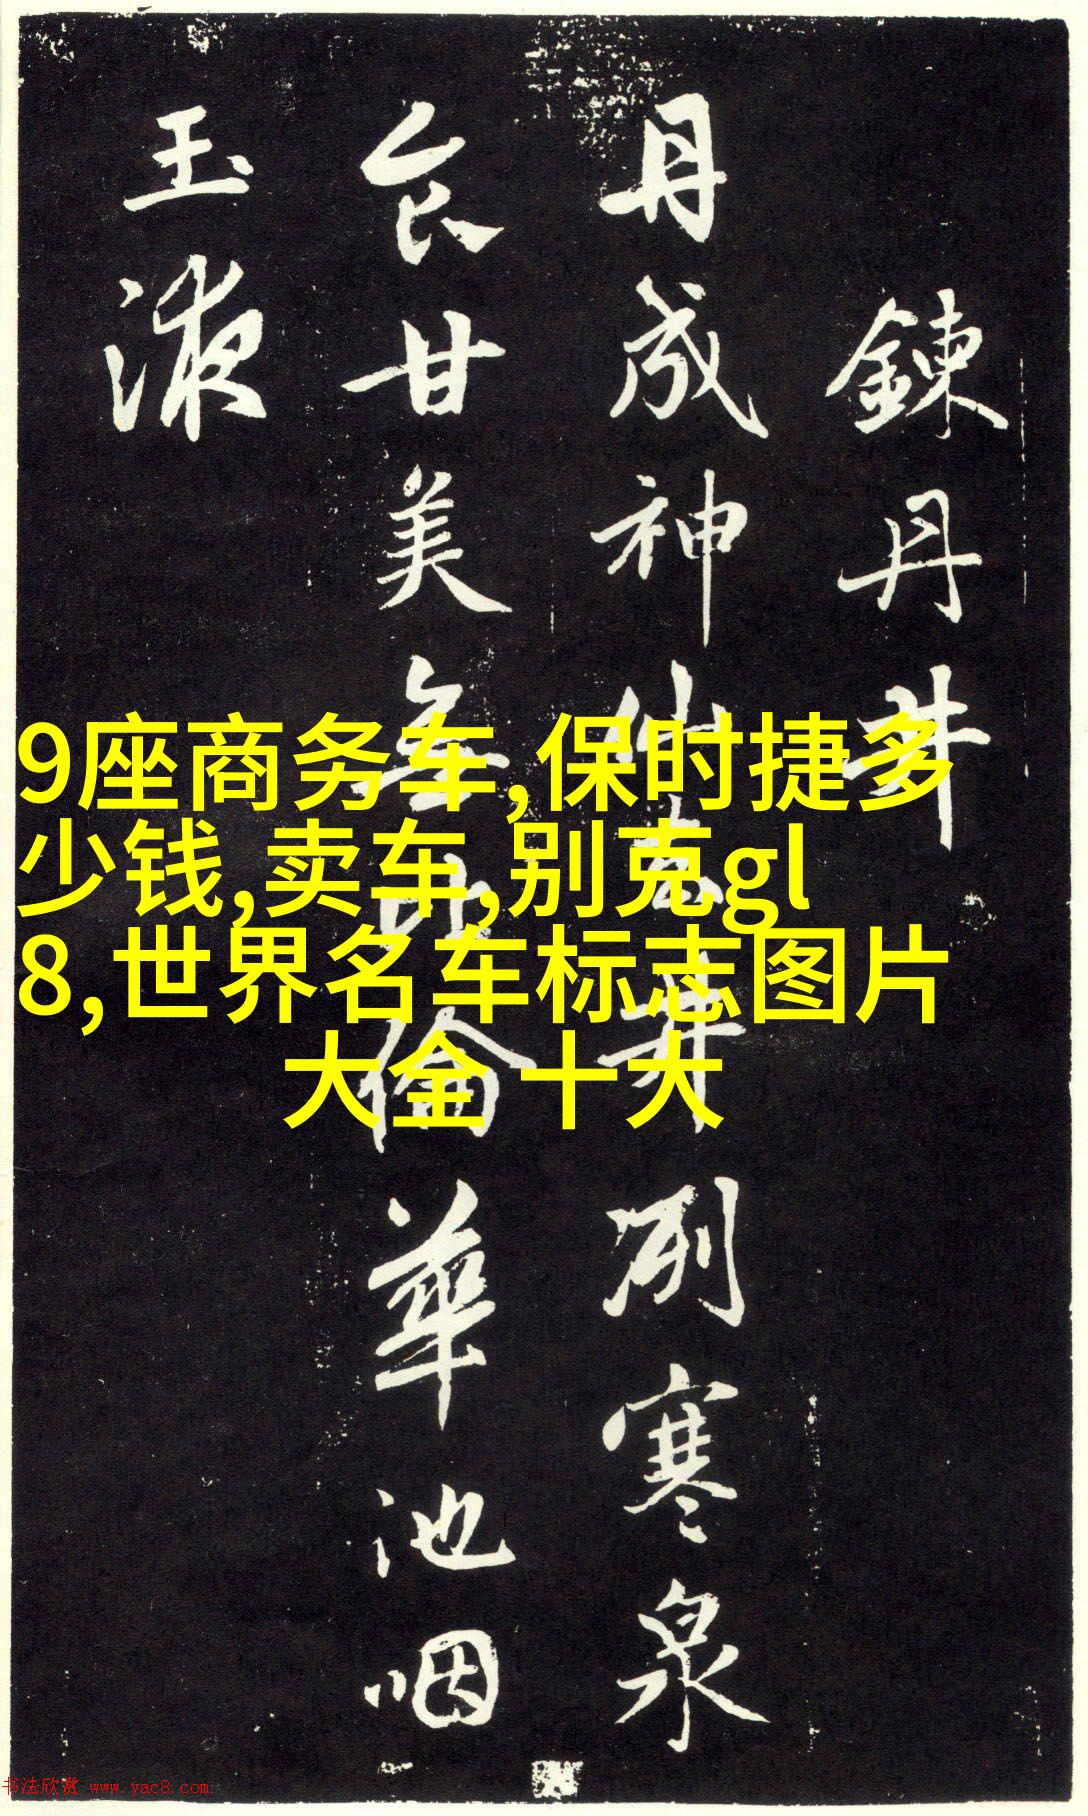 鍊丹井
丹成神仙去井冽寒泉
食甘美無比倫華池咽
玉液
9座商务车,保时捷多
少钱,卖车,别克gl
8,世界名车标志图片
大全 十大
书法欣赏 www.yac8.com